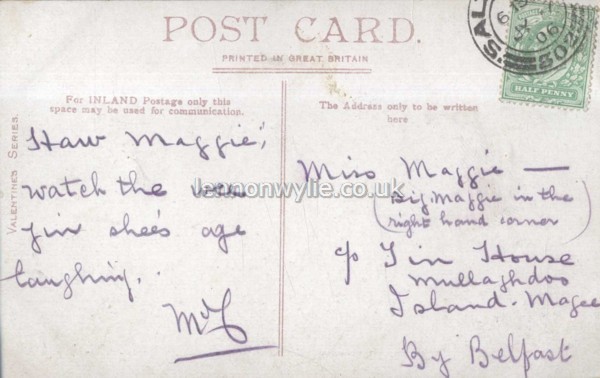 POST CARD.
PRINTED IN GREAT BRITAIN
For INLAND Postage only this
space may be used for communication.
The Address only to be written
here
VALENTINES SERIES.
HALF PENNY
06
502
lennonwylie.co.uk
Haw Maggie,
watch the wee
yin she's aye
laughing.
Miss Maggie —
(Big Maggie in the
right hand corner)
c/o Tin House
Mullaghdoo
Island Magee
By Belfast